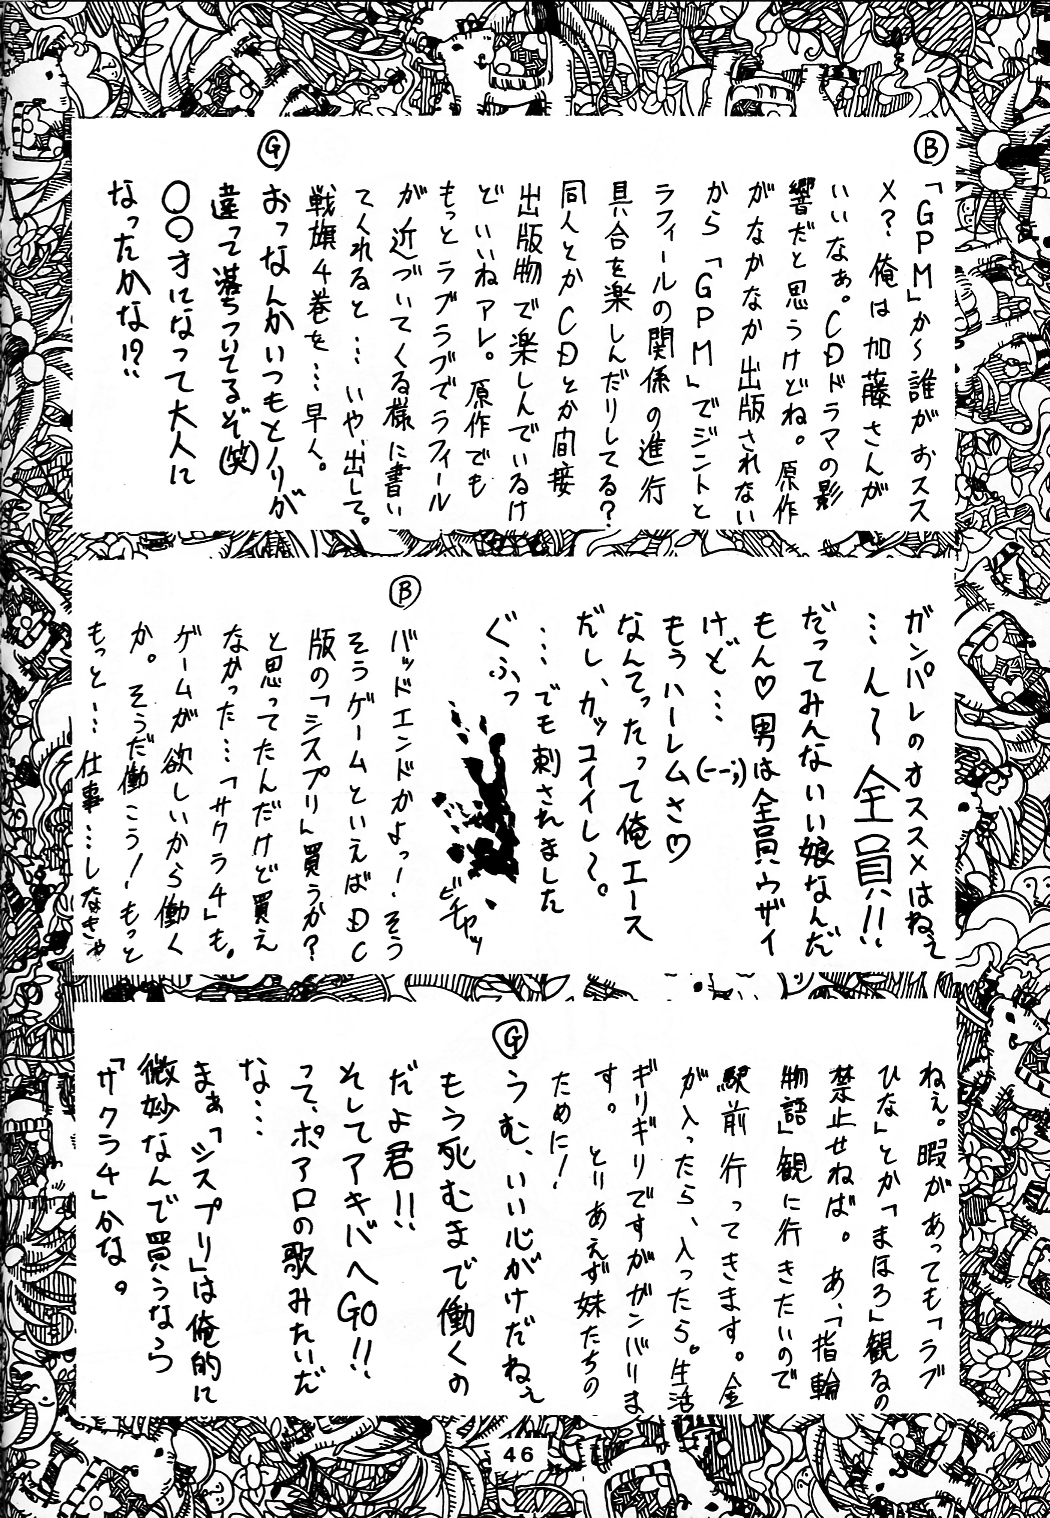 Ⓑ
「GPM」か〜誰がおスス
メ?俺は加藤さんが
いいなぁ。CDドラマの影
響だと思うけどね。原作
がなかなか出版されない
から「GPM」でジントと
ラフィールの関係の進行
具合を楽しんだりしてる?
同人とかCDとか間接
出版物で楽しんでいるけ
どいいねアレ。原作でも
もっとラブラブでラフィール
が近づいてくる様に書い
てくれると…いや、出して。
戦旗4巻を…早く。
Ⓖ
おっなんかいつもとノリが
違って落ちついてるぞ(笑)
〇〇才になって大人に
なったかな!?
ガンパレのオススメはねぇ
…ん〜全員!!
だってみんないい娘なんだ
もん♡男は全員ウザイ
けど…(ーー;)
もうハーレムさ♡
なんてったって俺エース
だし、カッコイイし〜。
…でも刺されました
ぐふっ
ビチャッ
Ⓑ
バッドエンドかよっ!そう
そうゲームといえばDC
版の「シスプリ」買うか?
と思ってたんだけど買え
なかった…「サクラ4」も。
ゲームが欲しいから働く
か。そうだ働こう!もっと
もっと…仕事…しなきゃ
ねぇ。暇があっても「ラブ
ひな」とか「まほろ」観るの
禁止せねば。あ、「指輪
物語」観に行きたいので
駅前行ってきます。金
が入ったら、入ったら。生活
ギリギリですがガンバリま
す。とりあえず妹たちの
ために!
Ⓖ
うむ、いい心がけだねぇ
もう死むまで働くの
だよ君!!
そしてアキバへGO!!
って、ポアロの歌みたいだ
な…
まぁ「シスプリ」は俺的に
微妙なんで買うなら
「サクラ4」かな。
46